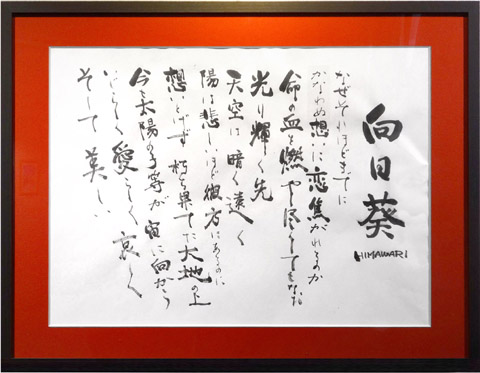 向日葵
HIMAWARI
なぜそれほどまでに
かなわぬ想いに恋焦がれるのか
命の血を燃やし尽くしてもなお
光り輝く先
天空は暗く遠く
陽は悲しいほど彼方にあるのに
想いとげず 朽ち果てた大地の上
今も太陽の子等が宙に向かう
愛らしく哀しく
そして美しい